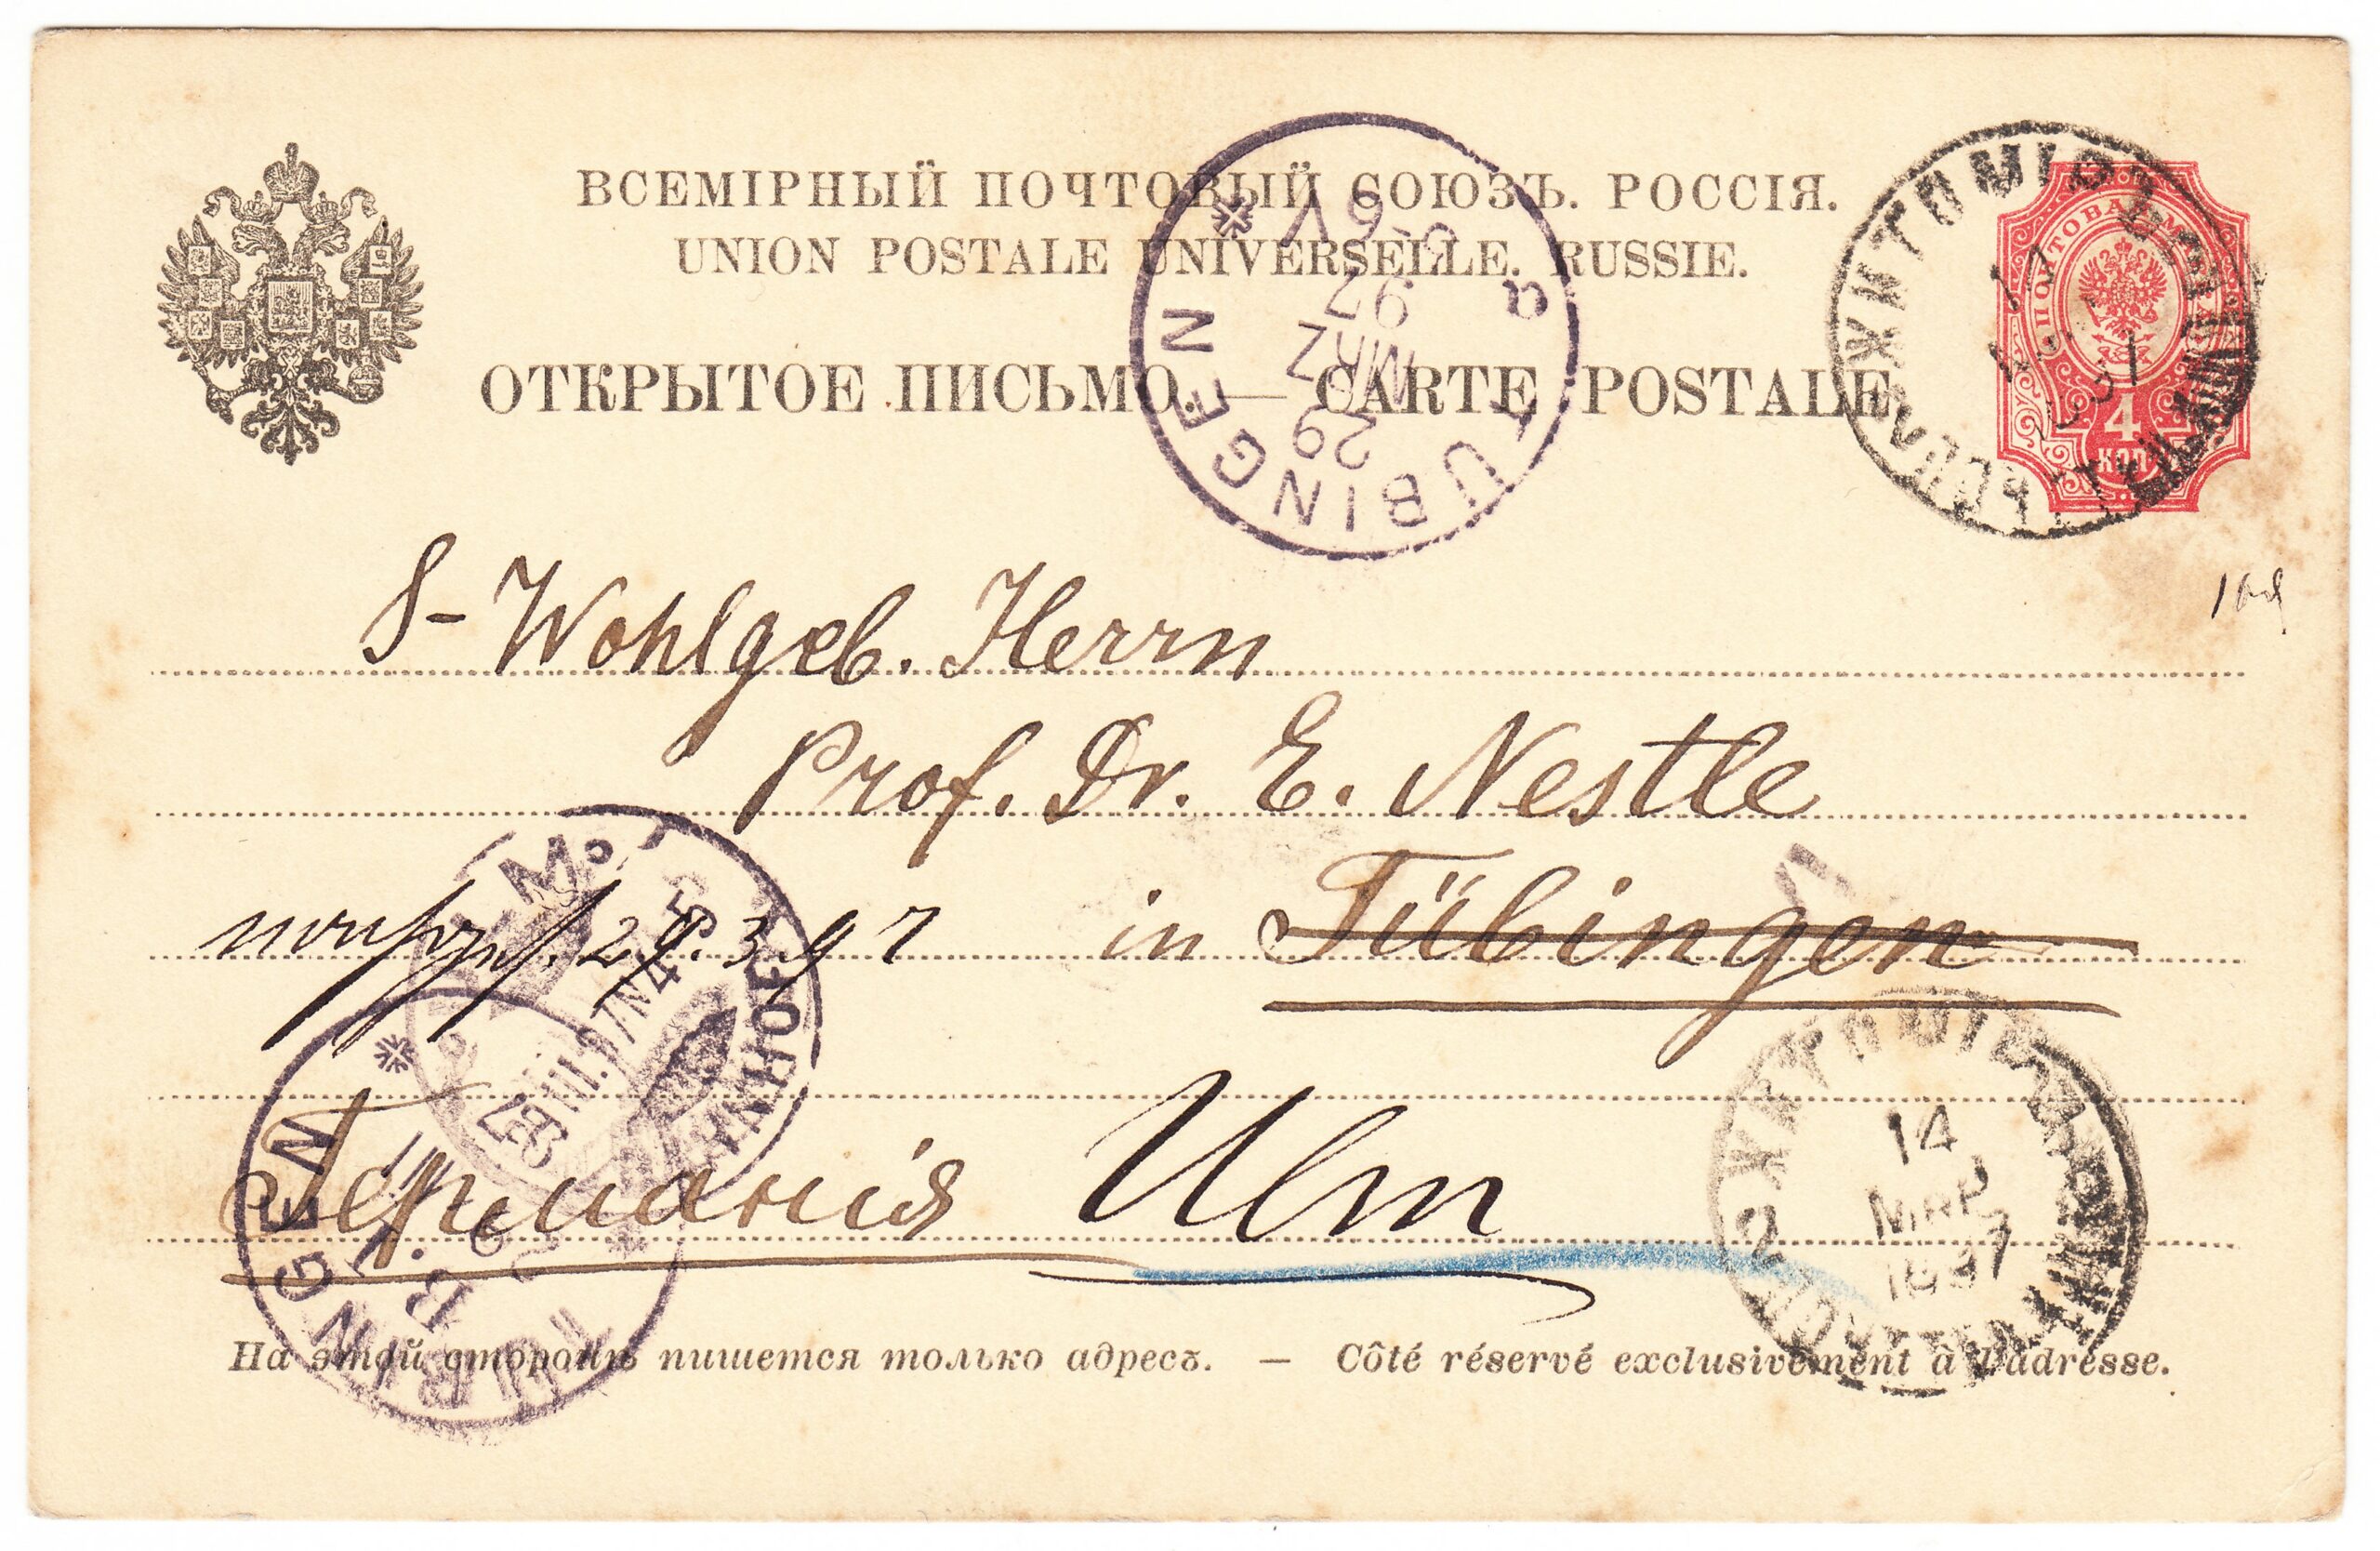 ВСЕМІРНЫЙ ПОЧТОВЫЙ СОЮЗЪ. РОССІЯ.
UNION POSTALE UNIVERSELLE. RUSSIE.
ОТКРЫТОЕ ПИСЬМО. — CARTE POSTALE.
ЖИТОМІРЪ
4
КОП
TUBINGEN
29
MRZ
97
5-6V
S- Wohlgeb. Herrn
Prof. Dr. E. Nestle
29.3.97 in Tübingen
BAHNHOF
29.III.97 N4-5
Германія Ulm
TUBINGEN
ЖИТОМІРЪ
14
МАР
1897
На этой сторонѣ пишется только адресъ. — Côté réservé exclusivement à l'adresse.